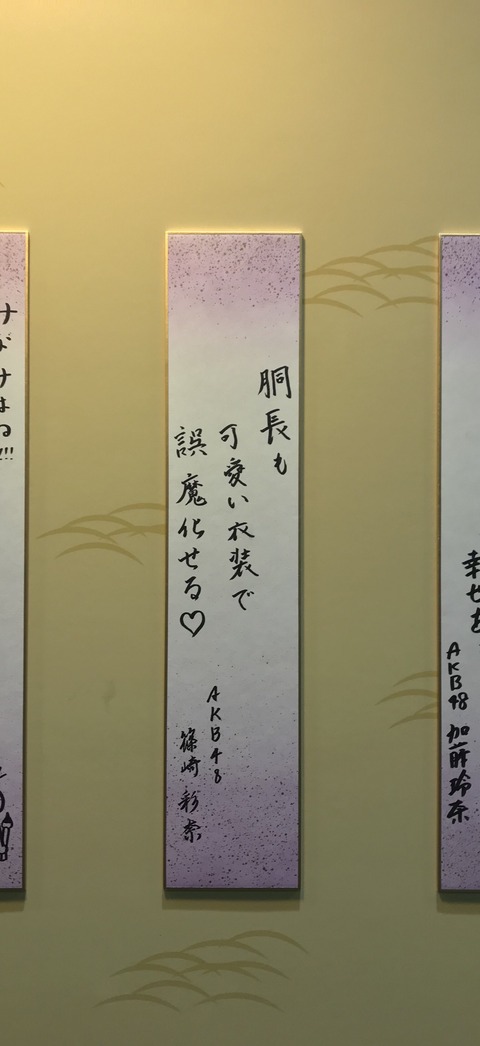 幸せを
AKB48 加藤玲奈
胴長も
可愛い衣装で
誤魔化せる♡
AKB48
篠崎彩奈
けがけはる!!!